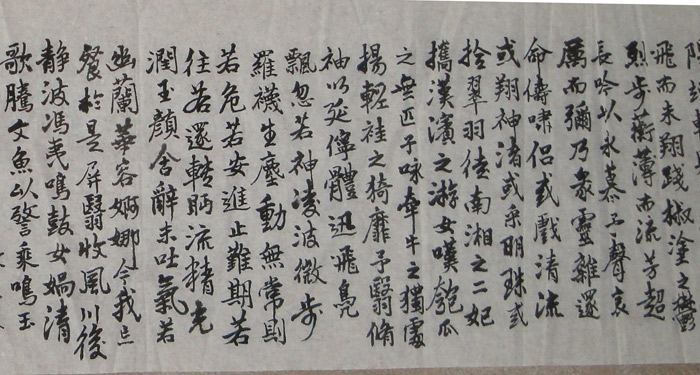 飛而未翔踐椒塗之郁
烈步蘅薄而流芳超
長吟以永慕子聲哀
厲而彌乃衆靈雜遝
命儔嘯侶或戲清流
或翔神渚或采明珠或
拾翠羽從南湘之二妃
攜漢濱之游女嘆匏瓜
之無匹子詠牽牛之獨處
揚輕袿之猗靡子翳脩
袖以延佇體迅飛鳧
飄忽若神凌波微步
羅襪生塵動無常則
若危若安進止難期若
往若還轉眄流精光
潤玉顏含辭未吐氣若
幽蘭華容婀娜令我忘
餐於是屏翳收風川後
靜波馮夷鳴鼓女媧清
歌騰文魚以警乘鳴玉